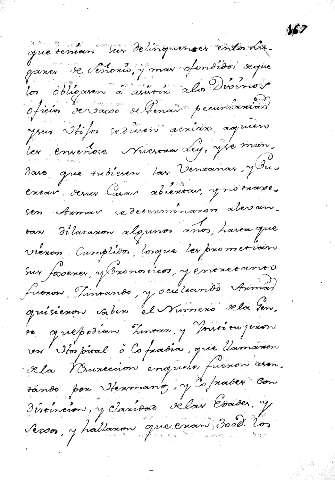 167
que tenian sus delinquentes en los Lu-
gares de Señorio, y mas ofendidos de que
los obligasen à asistir a los Divinos
oficios so pena pecuniaria,
y sus Hijos se diesen a criar a quien
les enseñase Nuestra Ley, y se man-
dase que tubiesen las Ventanas, y Pu-
ertas de sus Casas abiertas, y no traxe-
sen Armas se determinaron a levan-
tar dilataron algunos años, hasta que
vieron Cumplidos, lo que les prometian
sus favores, y Pronosticos, y entretanto
fueron juntando, y ocultando Armas
quisieron saber el Numero de la Gen-
te que podian juntar, y Instituyeron
un Hospital ò Cofradia, que llamaron
de la Resureccion en quien fueron asen-
tando por Hermanos, y Cofrades con
Distincion, y claridad de las Edades, y
Sexos, y hallaron que eran, los